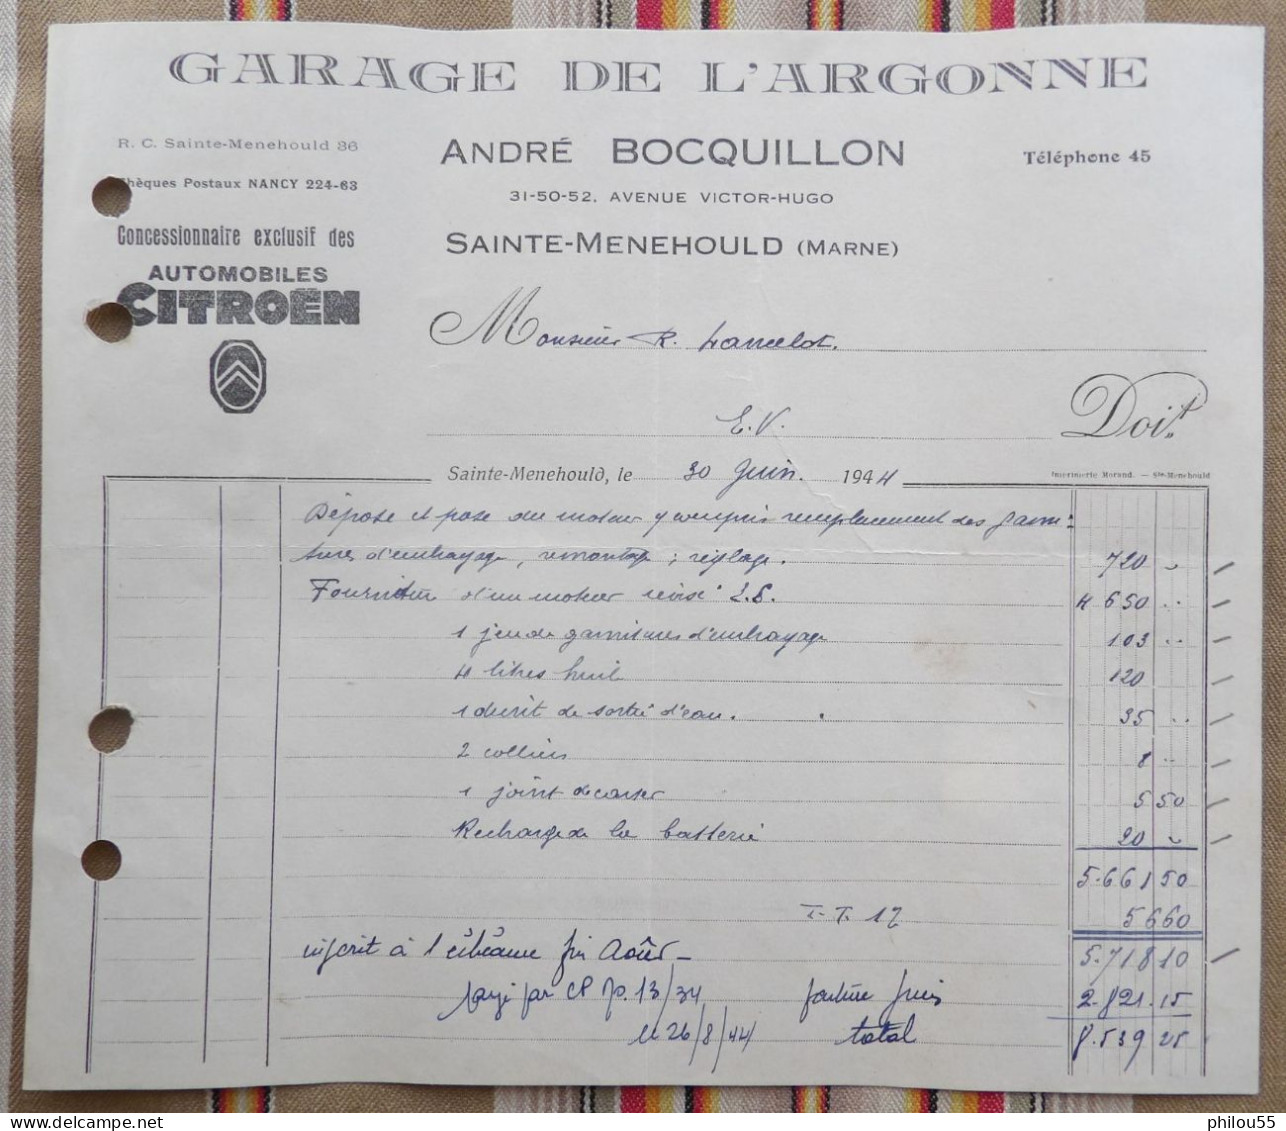 GARAGE DE L'ARGONNE
R. C. Sainte-Menehould 36
ANDRÉ BOCQUILLON
Téléphone 45
Chèques Postaux NANCY 224-63
31-50-52, AVENUE VICTOR-HUGO
Concessionnaire exclusif des
SAINTE-MENEHOULD (MARNE)
AUTOMOBILES
CITROËN
Monsieur R. Lancelot.
E.V.
Doit
Sainte-Menehould, le 30 Juin 1944
Imprimerie Morand. — Ste-Menehould
Dépose et pose du moteur y compris remplacement des garni-
tures d'embrayage, remontage, réglage. 720
Fourniture d'un moteur révisé 4 650
1 jeu de garnitures d'embrayage 103
4 litres huile 120
1 durit de sortie d'eau. 35
2 colliers 8
1 joint de carter 5 50
Recharge de la batterie 20
5.661 50
T.T. 1% 56 60
inscrit à l'échéance fin Août 5.718 10
payé par CP No. 13/34 facture Juin 2.821.15
le 26/8/44 total 8.539 25
philou55